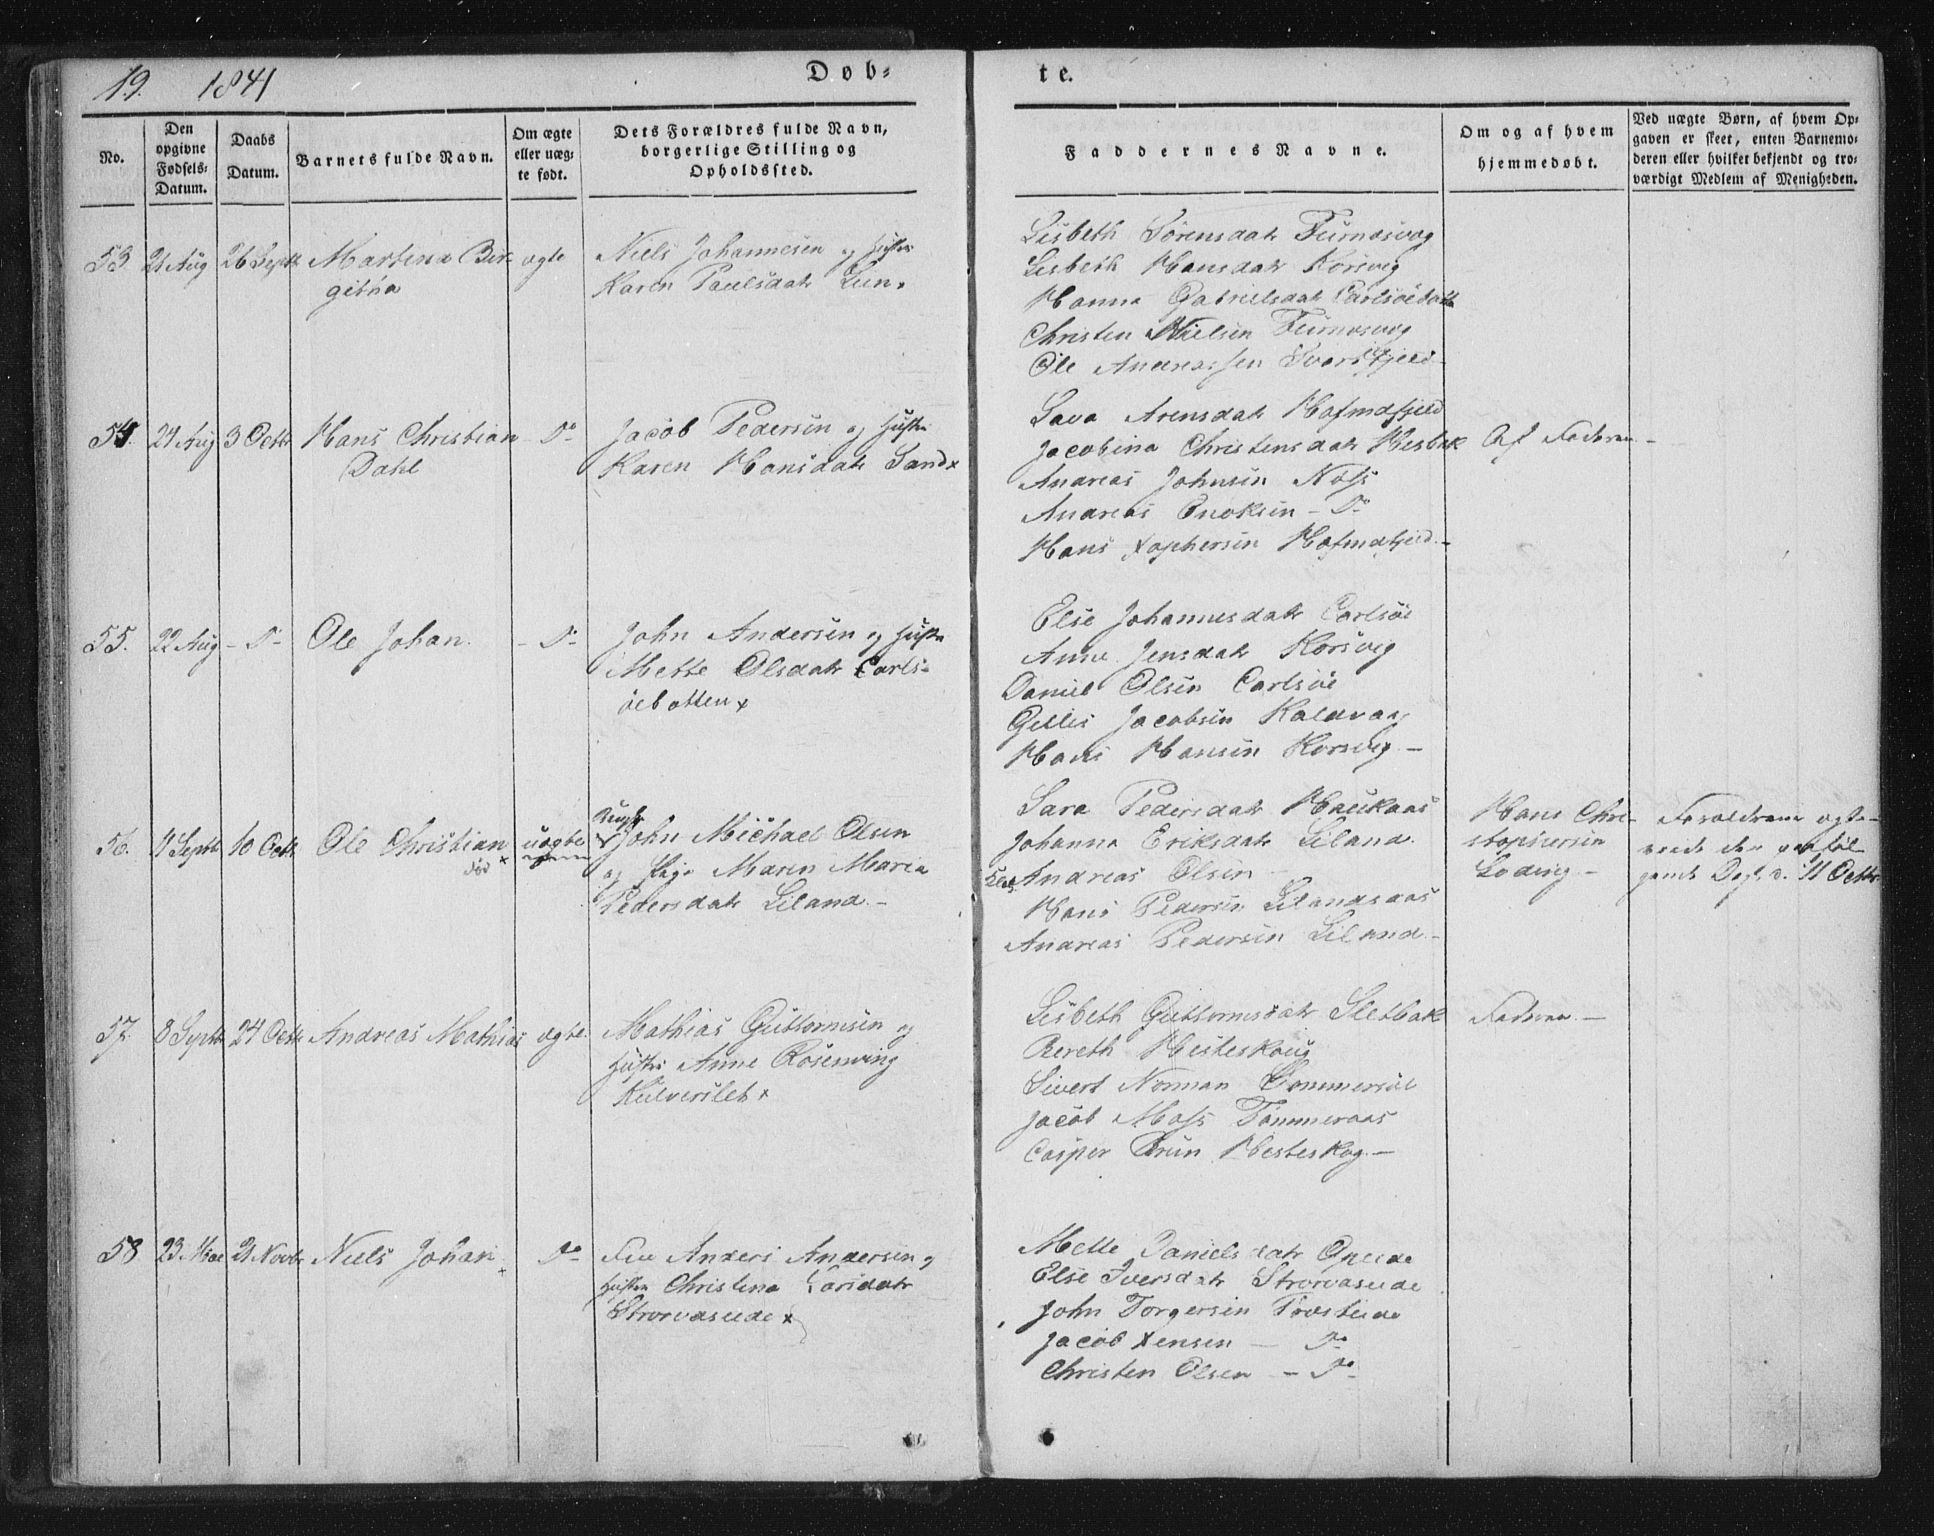 19. 1841
Døb-
te.
No.
Den opgivne Fødsels-Datum.
Daabs Datum.
Barnets fulde Navn.
Om ægte eller uæg-te født.
Dets Forældres fulde Navn, borgerlige Stilling og Opholdssted.
Faddernes Navne.
Om og af hvem hjemmedøbt.
Ved uægte Børn, af hvem Op-gaven er skeet, enten Barnemo-deren eller hvilket bekjendt og tro-værdigt Medlem af Menigheden.
53. 21 Aug 26 Septb Martina Bir- ægte
githa
Niels Johannesen og Hustru
Karen Paulsdatr Lun
Lisbeth Sørensdatr
Lisbeth Hansdatr Korsvig
Hanna Gabrielsdatr Carlsöebotn
Christen Nielsen
Ole Andreassen
54. 24 Aug 3 Octb Hans Christian Do
Dahl
Jacob Pedersen og Hustru
Karen Hansdatr Sand x
Arensdatr
Jacobina Christensdatr
Andreas Johnsen
Andreas Enoksen - Do
Hans Xophersen
Af Faderen -
55. 22 Aug - Do Ole Johan. - Do
John Andersen og Hustru
Mette Olsdatr Carls-
öebotten x
Else Johannesdatr Carlsöe
Anne Jensdatr Korsvig
Daniel Olsen Carlsöe
Jacobsen Kaldvaag
Hans Hansen Korsvig -
56. 4 Septb 10 Octb Ole Christian uægte
død x
John Michael Olsen
og Pige Maren Maria
Pedersdatr Liland -
Sara Pedersdatr Haukaas
Johanna Eriksdatr Liland
Andreas Olsen
Hans Pedersen Lilandsaas
Andreas Pedersen Liland -
Hans Chri-
stophersen
Løding -
Forældrene ægte-
viede den paaføl-
gende Dag, d. 11 Octbr
57. 8 Septb 24 Octb Andreas Mathias ægte
Mathias Guttormsen og
Hustru Anne Rosenving
Kulverslet x
Lisbeth Guttormsdatr Sletbak
Bereth Hesteskoug
Sivert Norman
Jacob Moss Tømmeraas
Casper Brun Hesteskog -
Faderen -
58 23 21 Novbr Niels Johan Do
Anders Andersen og
Hustru Christina Larsdatr
Storvaseide x
Mette Danielsdatr
Else Iversdatr Storvaseide
John Torgersen
Jacob Jensen - Do
Christen Olsen - Do